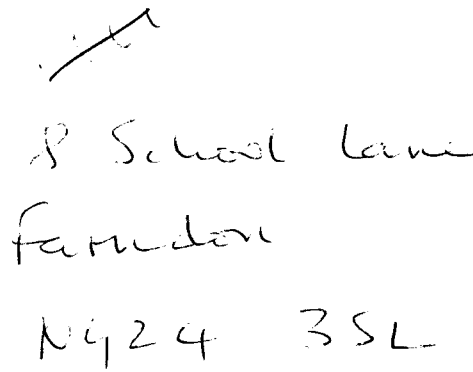 8 School Lane
Farndon
NG24 3SL